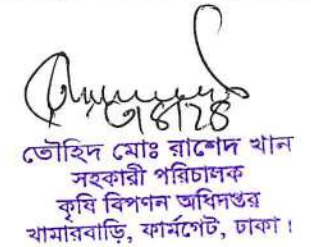 তৌহিদ মোঃ রাশেদ খান
সহকারী পরিচালক
কৃষি বিপণন অধিদপ্তর
খামারবাড়ি, ফার্মগেট, ঢাকা।